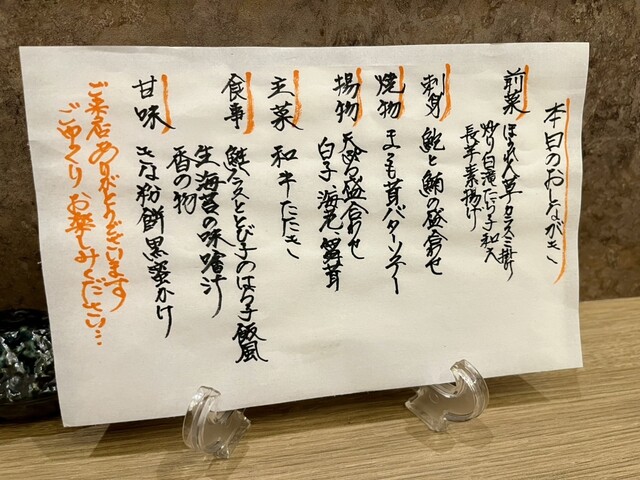 本日のおしながき
前菜
ほうれん草カラスミ掛け
炒り白滝たらこ和え
長芋素揚げ
刺身
鮑と鮪の盛合わせ
焼物
まるも茸バターソテー
揚物
天ぷら盛合わせ
白子、海老、舞茸
主菜
和牛たたき
食事
鮭とととび子のはらこ飯風
生海苔の味噌汁
香の物
甘味
きな粉餅黒蜜かけ
ご来店ありがとうございます
ごゆっくりお楽しみください…